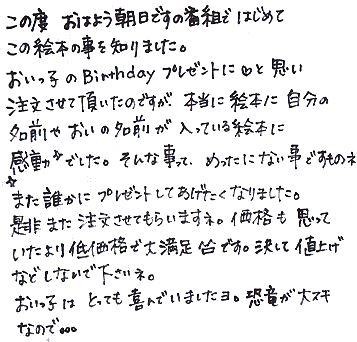 この度 おはよう朝日ですの番組で はじめて
この絵本の事を知りました。
おいっ子のBirthday プレゼントに♡と思い
注文させて頂いたのですが、本当に絵本に 自分の
名前や おいの名前が 入っている絵本に
感動☆でした。そんな事って、めったにない事ですものネ
☆また誰かに プレゼントしてあげたくなりました。
是非また注文させてもらいますネ。価格も思って
いたより低価格で大満足 です。決して値上げ
などしないで下さいネ。
おいっ子は とっても喜んでいましたヨ。恐竜が大スキ
なので…